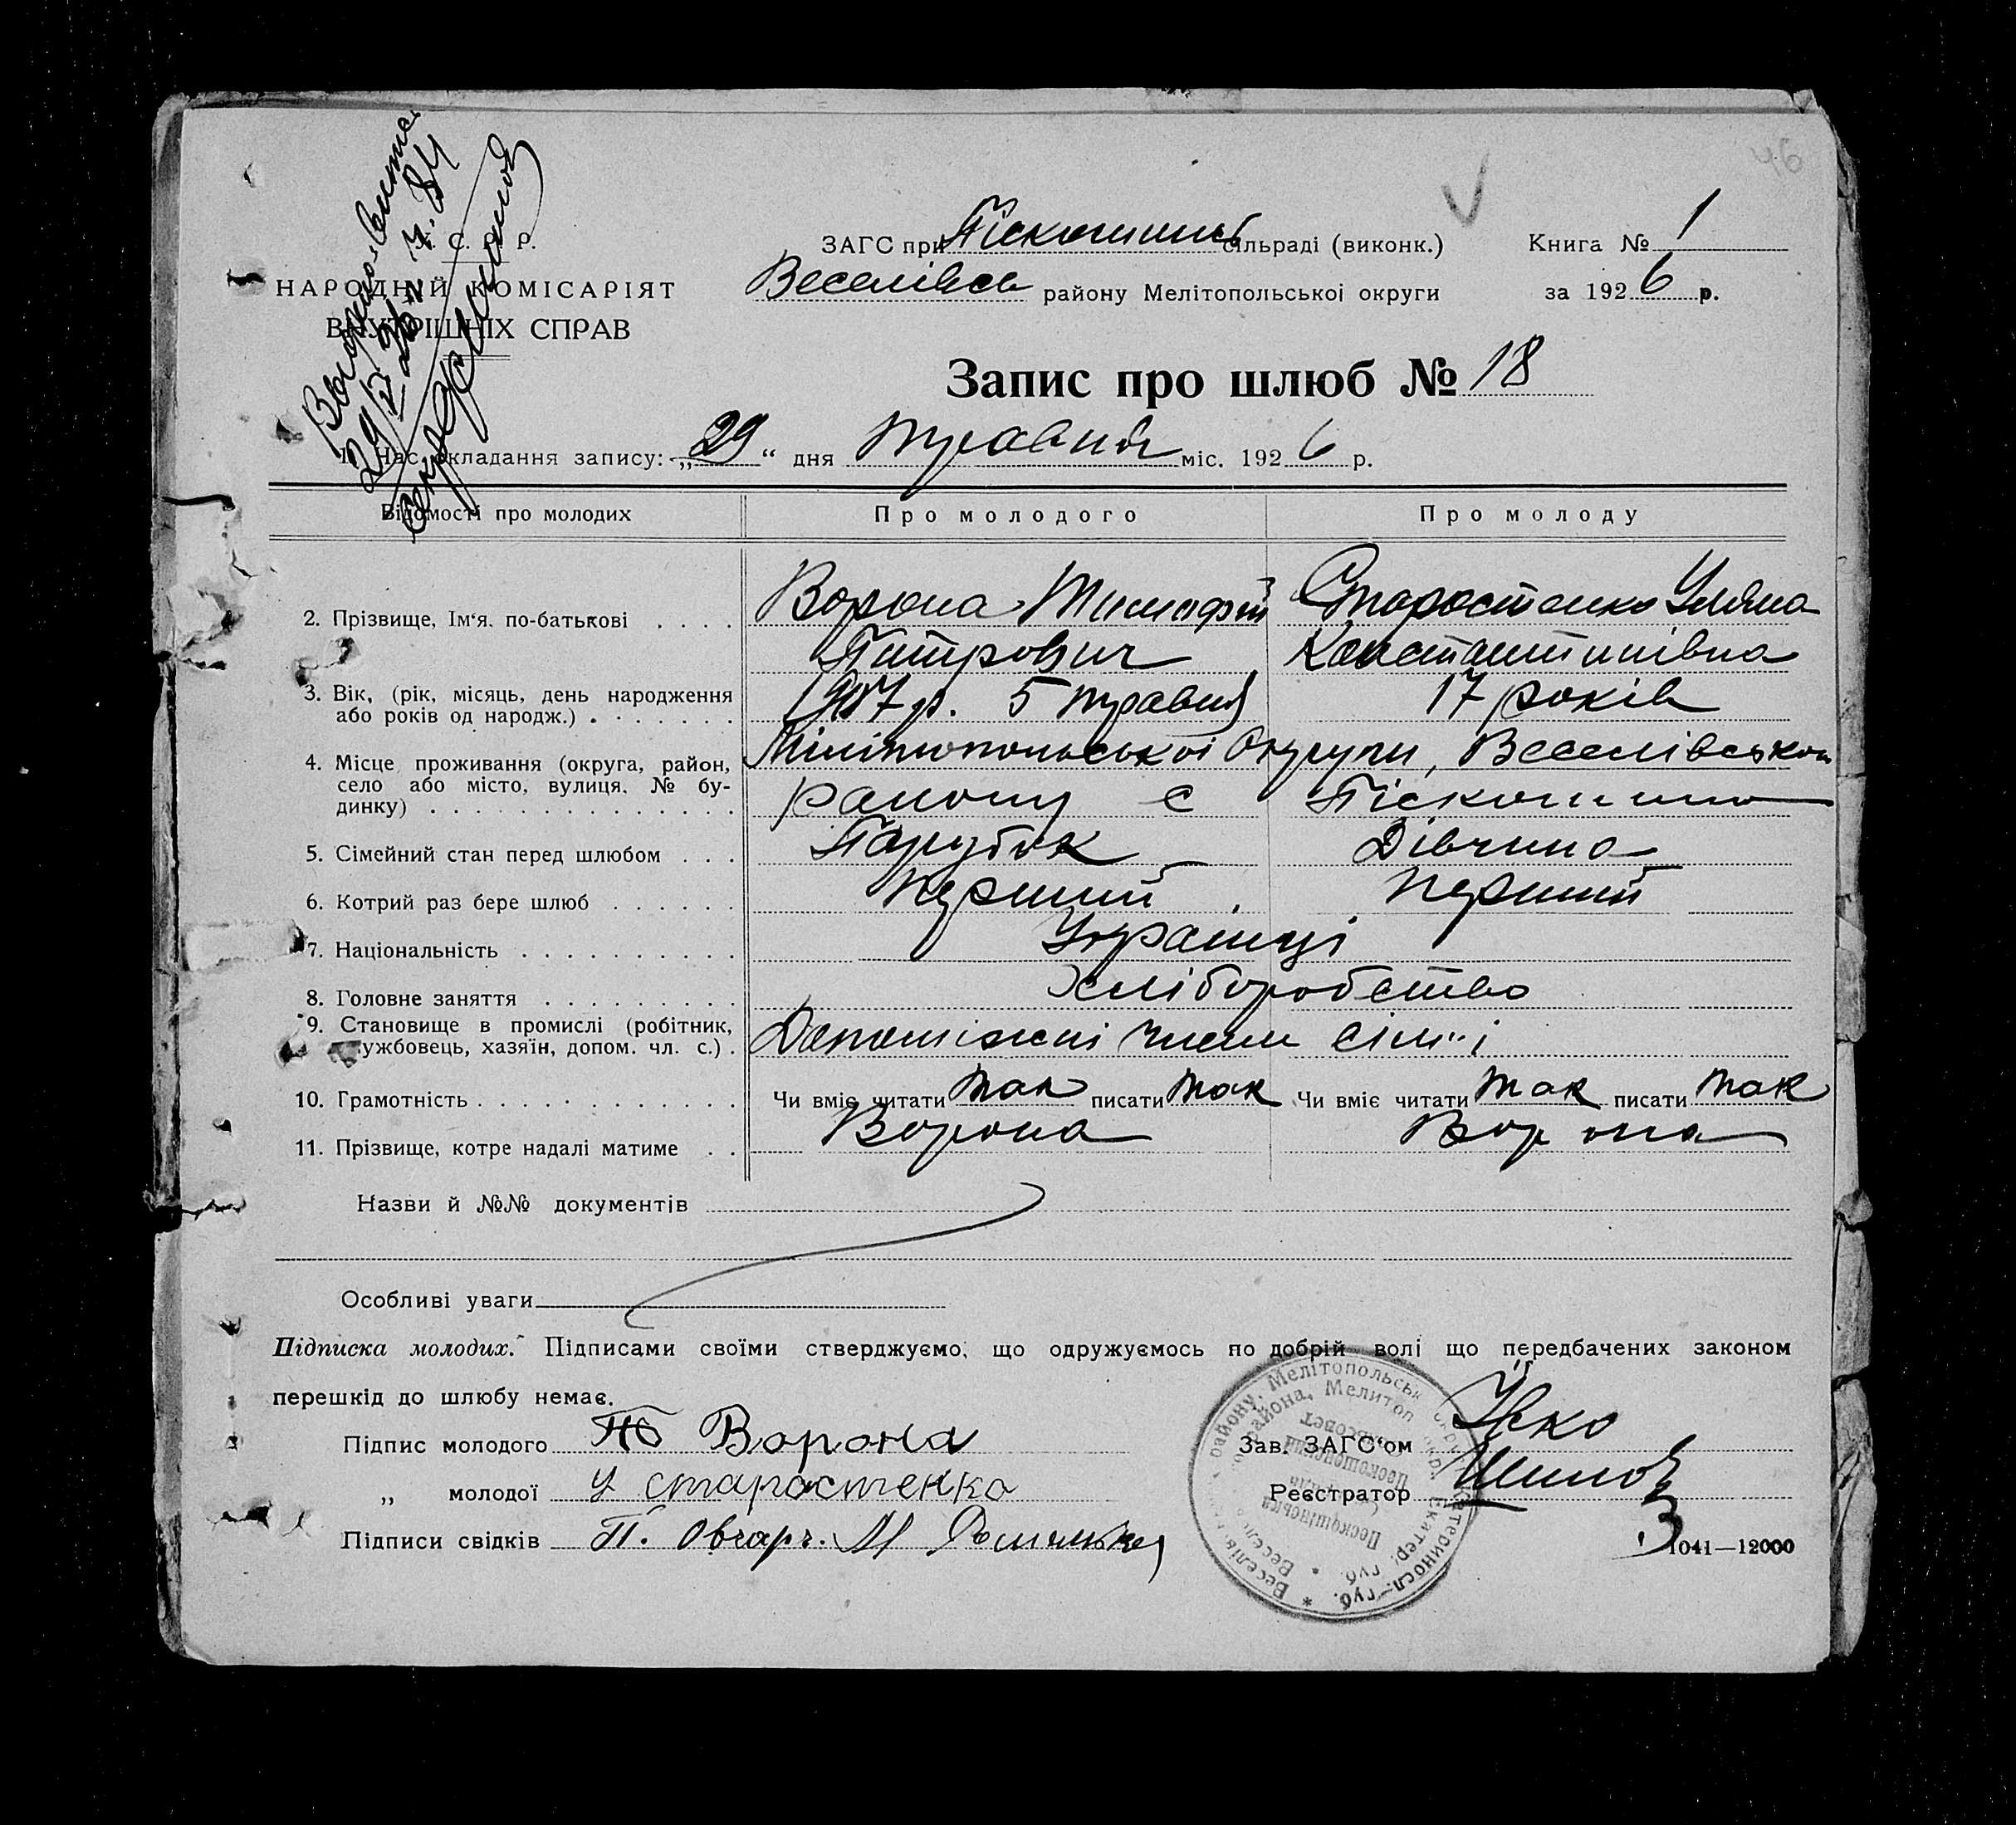 У. С. Р. Р.
НАРОДНИЙ КОМІСАРІЯТ
ВНУТРІШНІХ СПРАВ
29/V 26 р. № 84
ЗАГС при Піскошинс сільраді (виконк.)
Книга № 1
Веселівсь району Мелітопольської округи
за 1926 р.
Запис про шлюб № 18
1. Час складання запису: „29“ дня травня міс. 1926 р.
Відомості про молодих
Про молодого
Про молоду
2. Прізвище, Ім'я, по-батькові . . . .
Ворона Тимофій
Старостенко Уляна
Питрович
Константинівна
3. Вік, (рік, місяць, день народження
або років од народж.) . . . . . . .
1907 р. 5 травня
17 років
4. Місце проживання (округа, район,
село або місто, вулиця, № бу-
динку) . . . . . . . . . . . . . .
Міліпопольської Округи, Веселівської
району с Піскошино
5. Сімейний стан перед шлюбом . . .
Парубок
Дівчина
6. Котрий раз бере шлюб . . . . . .
перший
перший
7. Національність . . . . . . . . . .
Украінці
8. Головне заняття . . . . . . . . .
Хліборобство
9. Становище в промислі (робітник,
службовець, хазяїн, допом. чл. с.) .
Допоміжні члени сім'і
10. Грамотність . . . . . . . . . . . .
Чи вміє читати так писати так
Чи вміє читати так писати так
11. Прізвище, котре надалі матиме . .
Ворона
Ворона
Назви й №№ документів
Особливі уваги
Підписка молодих. Підписами своїми стверджуємо, що одружуємось по добрій волі що передбачених законом
перешкід до шлюбу немає.
Підпис молодого Ворона
Зав. ЗАГС'ом
„ молодої У старостенко
Реєстратор
Підписи свідків П. Овчар
1041—12000